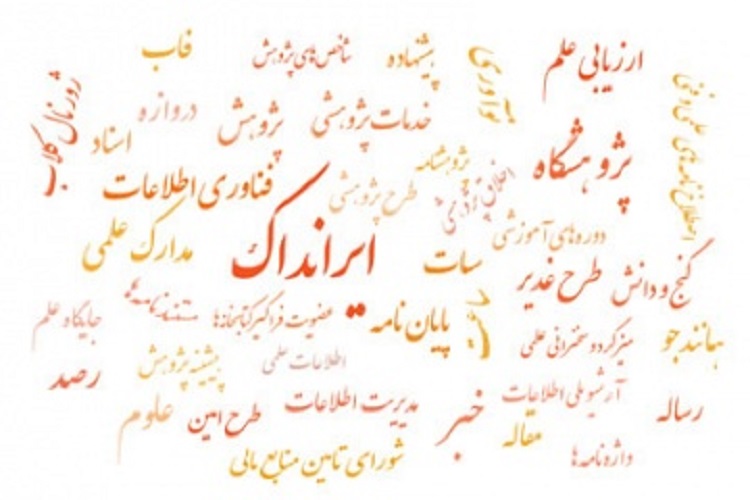 ارزیابی علم
پیشنهاده
شاخص‌های پژوهش
فاب
نوآوری
ژورنال کلاب
خدمات پژوهشی
پژوهش
دروازه
اسناد
پژوهشگاه
پژوهشنامه
اخلاق پژوهش
طرح پژوهشی
فناوری اطلاعات
دوره‌های آموزشی
ایرانداک
مدارک علمی
سات
گنج و دانش
طرح غدیر
عضویت فراگیر کتابخانه‌ها
مستندنامه
جایگاه علم
پایان نامه
میزگرد و سخنرانی علمی
همانندجو
اطلاعات علمی
پیشینه پژوهش
رصد
آرشیو ملی اطلاعات
رساله
مدیریت اطلاعات
خبر
طرح امین
علوم
مقاله
واژه‌نامه‌ها
شورای تامین منابع مالی